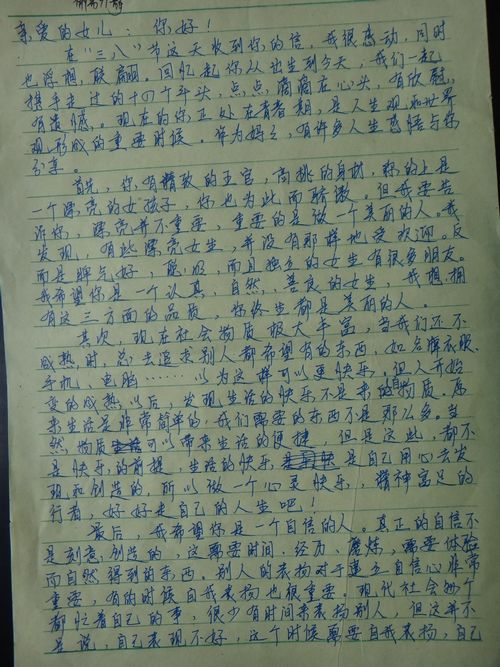 亲爱的女儿：你好！
在"三八"节这天收到你的信，我很感动，同时
也浮想联翩。回忆起你从出生到今天，我们一起
携手走过的十四个年头，点点滴滴在心头，有欣慰，
有遗憾。现在的你正处在青春期，是人生观和世界
观形成的重要时候。作为妈妈，有许多人生感悟与你
分享。
首先，你有精致的五官，高挑的身材，称的上是
一个漂亮的女孩子，你也为此而骄傲。但我要告
诉你，漂亮并不重要，重要的是做一个美丽的人。我
发现，有些漂亮女生，并没有那样地受欢迎。反
而是脾气好，聪明，而且独立的女生有很多朋友。
我希望你是一个认真，自然，善良的女生，我想，拥
有这三方面的品质，你终生都是美丽的人。
其次，现在社会物质极大丰富，当我们还不
成熟时，总去追求别人都希望有的东西，如名牌衣服、
手机、电脑……以为这样可以更快乐。但人开始
变的成熟以后，发现生活的快乐不是来自物质。原
来生活是非常简单的，我们需要的东西不是那么多。当
然物质可以带来生活的便捷，但是这些，都不
是快乐的前提，生活的快乐是自己用心去发
现和创造的，所以做一个心灵快乐，精神富足的
行者，好好走自己的人生吧！
最后，我希望你是一个自信的人。真正的自信不
是刻意创造的，这需要时间、经历、磨炼，需要体验
而自然得到的东西。别人的表扬对于建立自信心非常
重要，有的时候自我表扬也很重要。现代社会每个
都忙着自己的事，很少有时间来表扬别人，但这并不
是说，自己表现不好，这个时候需要自我表扬，自己